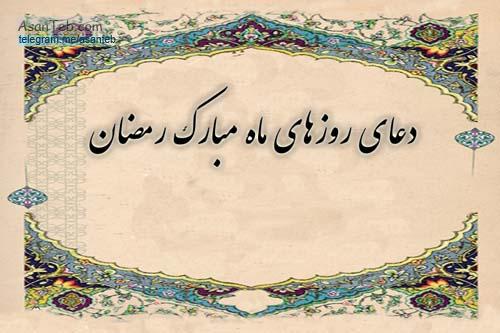 AsanTeb.com
telegram.me/asanteb
دعای روزهای ماه مبارک رمضان